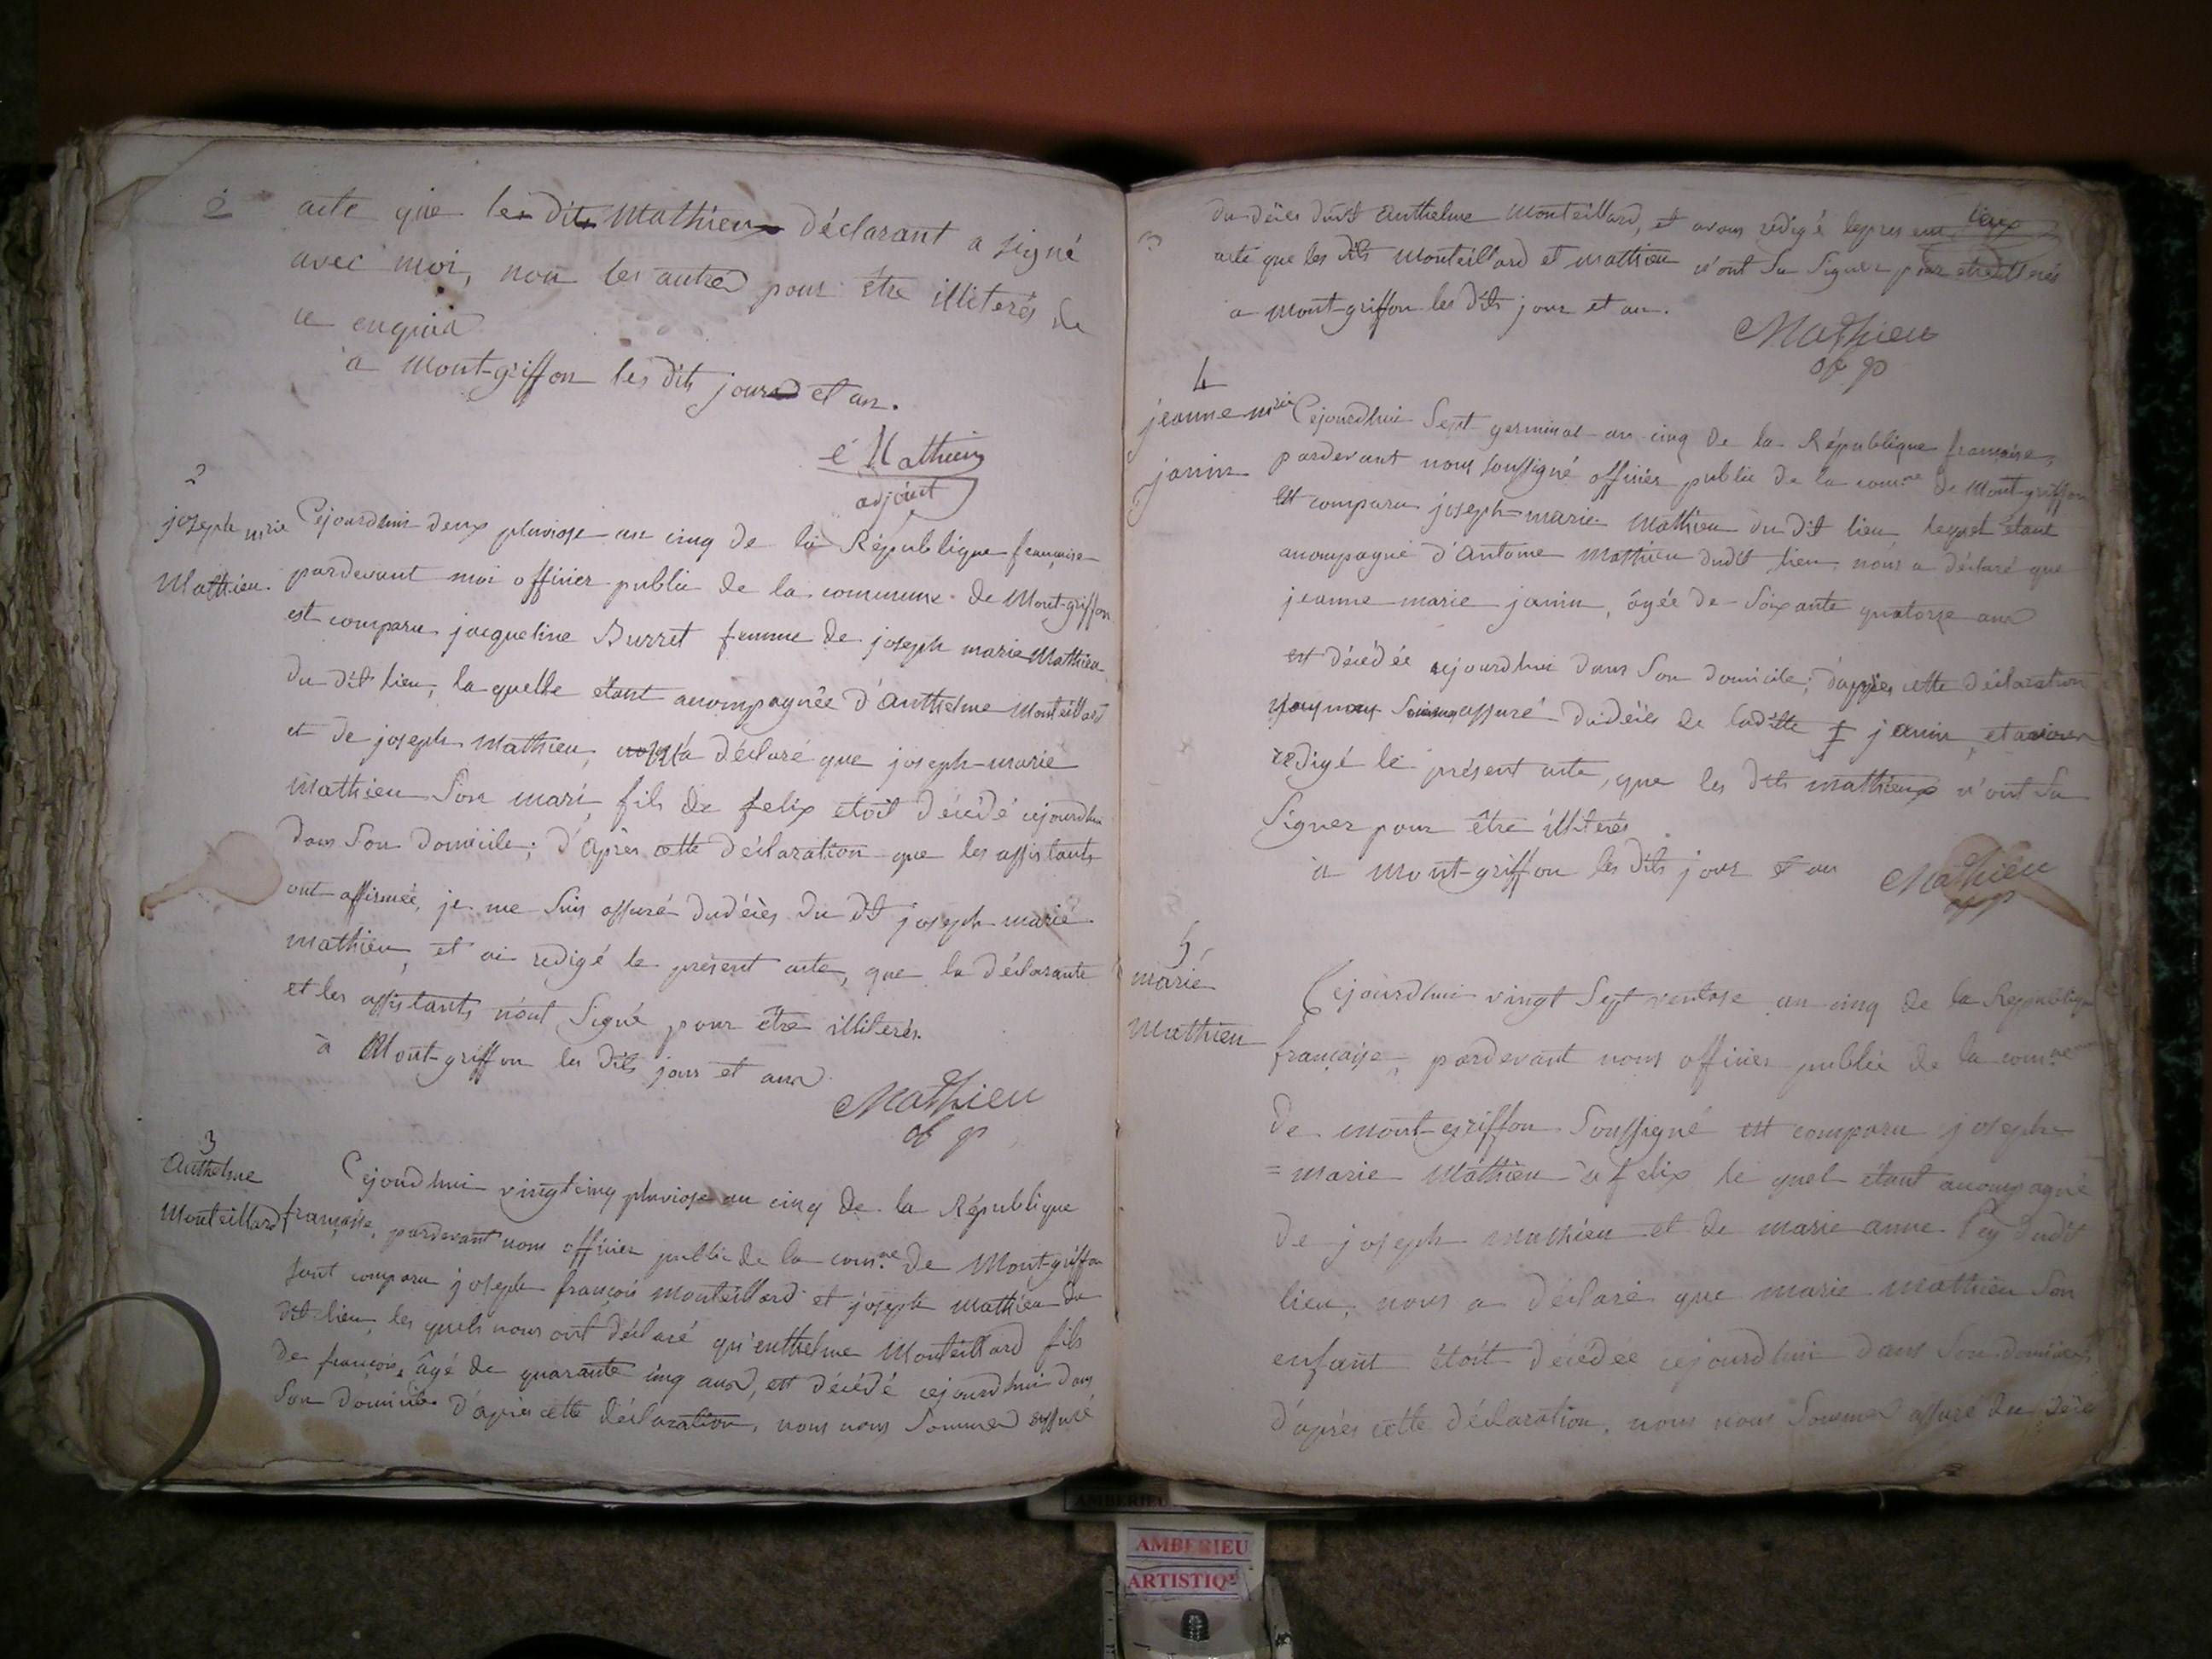 2
acte que les dits Mathieu déclarant a signé
avec moi, non les autres pour être illiterés de
ce enquis
a Mont-griffon les dits jour et an.
é Mathieu
adjoint
2
joseph mrie
Mathieu.
Cejourdhui deux pluviose an cinq de la République francaise
pardevant moi officier public de la commune de Mont-griffon
est comparu jacqueline Burret femme de joseph marie Mathieu
du dit lieu, la quelle etant acompagnée d'Anthelme Monteillard
et de joseph Mathieu, a déclaré que joseph-marie
Mathieu Son mari, fils de felix etoit décédé cejourdhui
dans Son domicile; d'après cette déclaration que les assistants
ont affirmée, je me suis assuré du décès du dit joseph marie
mathieu, et ai redigé le présent acte, que la déclarante
et les assistants n'ont Signé pour être illiterés.
à Mont-griffon les dits jour et ans
Mathieu
of p
3
Anthelme
Monteillard
Cejourdhui vingtcinq pluviose an cinq de la République
française, pardevant nous officier public de la comne de Mont-griffon
sont comparu joseph françois Monteillard et joseph Mathieu du
dit lieu, les quels nous ont déclaré qu'enthelme Monteillard fils
de françois, âgé de quarante cinq ans, est décédé cejourdhui dans
Son domicile d'après cette déclaration, nous nous Sommes assuré
3
du décès dudit Anthelme Monteillard, et avons redigé le present
acte que les dits Monteillard et Mathieu n'ont Su Signer pour etre illiterés
a Mont-griffon les dits jour et an.
Mathieu
of p
4
jeanne mrie
janin
Cejourdhui Sept germinal an cinq de la République française,
pardevant nous soussigné officier public de la comne de Mont-griffon
est comparu joseph-marie Mathieu du dit lieu, lequel étant
acompagné d'Antoine Mathieu dudit lieu, nous a déclaré que
jeanne marie janin, âgée de Soixante quatorze ans
est décédée cejourdhui dans Son domicile; d'après cette déclaration
assuré du décès de laditte janin, et avons
redigé le présent acte, que les dits mathieux n'ont Su
Signer pour être illiterés
à Mont-griffon les dits jour et an
Mathieu
of p
5
marie
Mathieu
Cejourdhui vingt Sept ventose an cinq de la République
française, pardevant nous officier public de la comne
de Mont-griffon Soussigné est comparu joseph
=marie Mathieu à felix le quel étant acompagné
de joseph Mathieu et de marie anne Pey dudit
lieu, nous a déclaré que marie Mathieu Son
enfant étoit décédée cejourdhui dans Son domicile
d'après cette déclaration, nous nous Sommes assuré du décès
AMBERIEU
AMBERIEU
ARTISTIQ